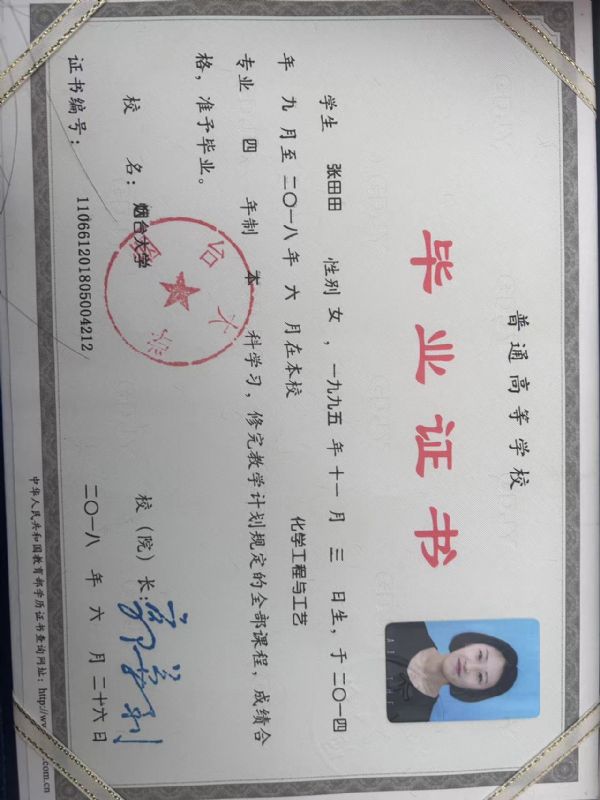 普通高等学校
毕业证书
学生 张田田 性别 女 ，一九九五 年 十一 月 三 日生，于 二〇一四
年 九 月至 二〇一八 年 六 月在本校 化学工程与工艺
专业 四 年制 本 科学习，修完教学计划规定的全部课程，成绩合
格，准予毕业。
校 名：烟台大学
校（院）长：
证书编号：110661201805004212
二〇一八 年 六 月 二十六 日
中华人民共和国教育部学历证书查询网址：http://w
.com.cn
烟台大学